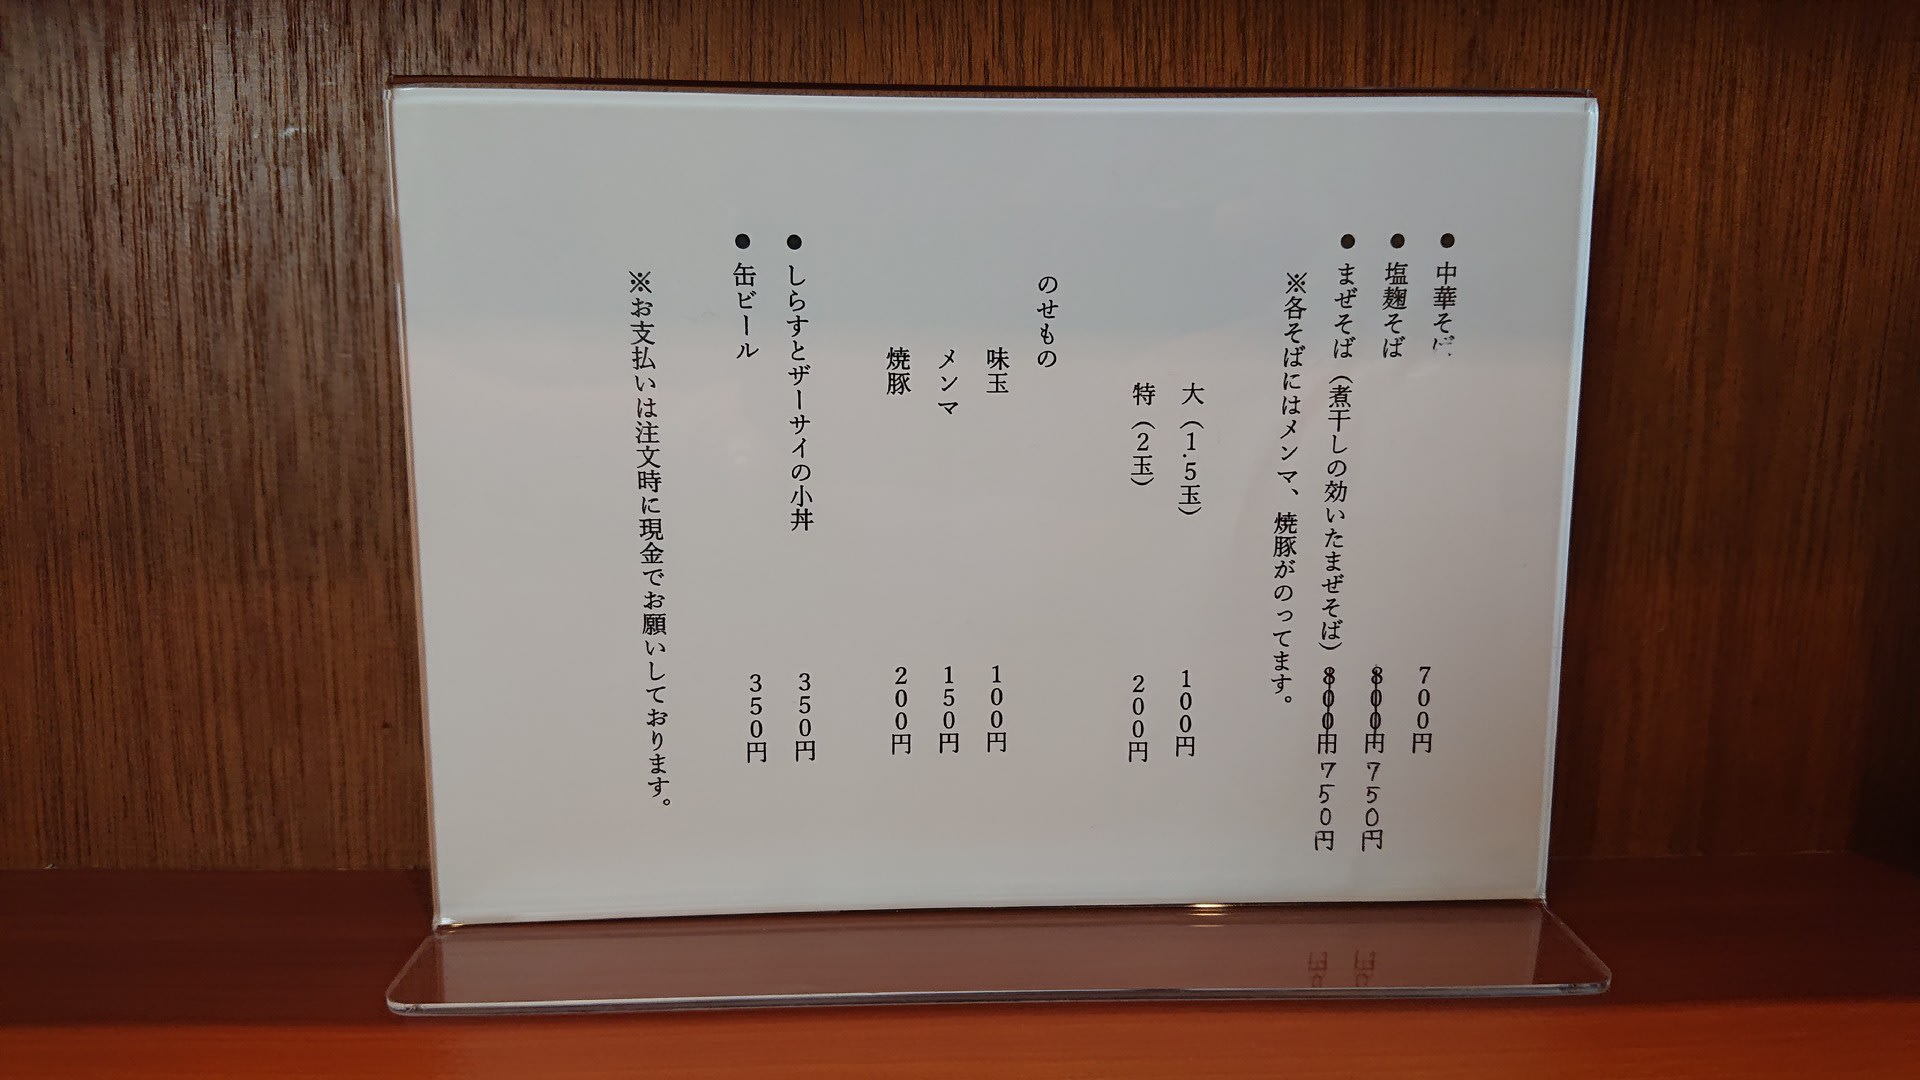 ● 中華そば 700円
● 塩麹そば 800円 750円
● まぜそば（煮干しの効いたまぜそば） 800円 750円
※各そばにはメンマ、焼豚がのってます。
大（1.5玉） 100円
特（2玉） 200円
のせもの
味玉 100円
メンマ 150円
焼豚 200円
● しらすとザーサイの小丼 350円
● 缶ビール 350円
※お支払いは注文時に現金でお願いしております。